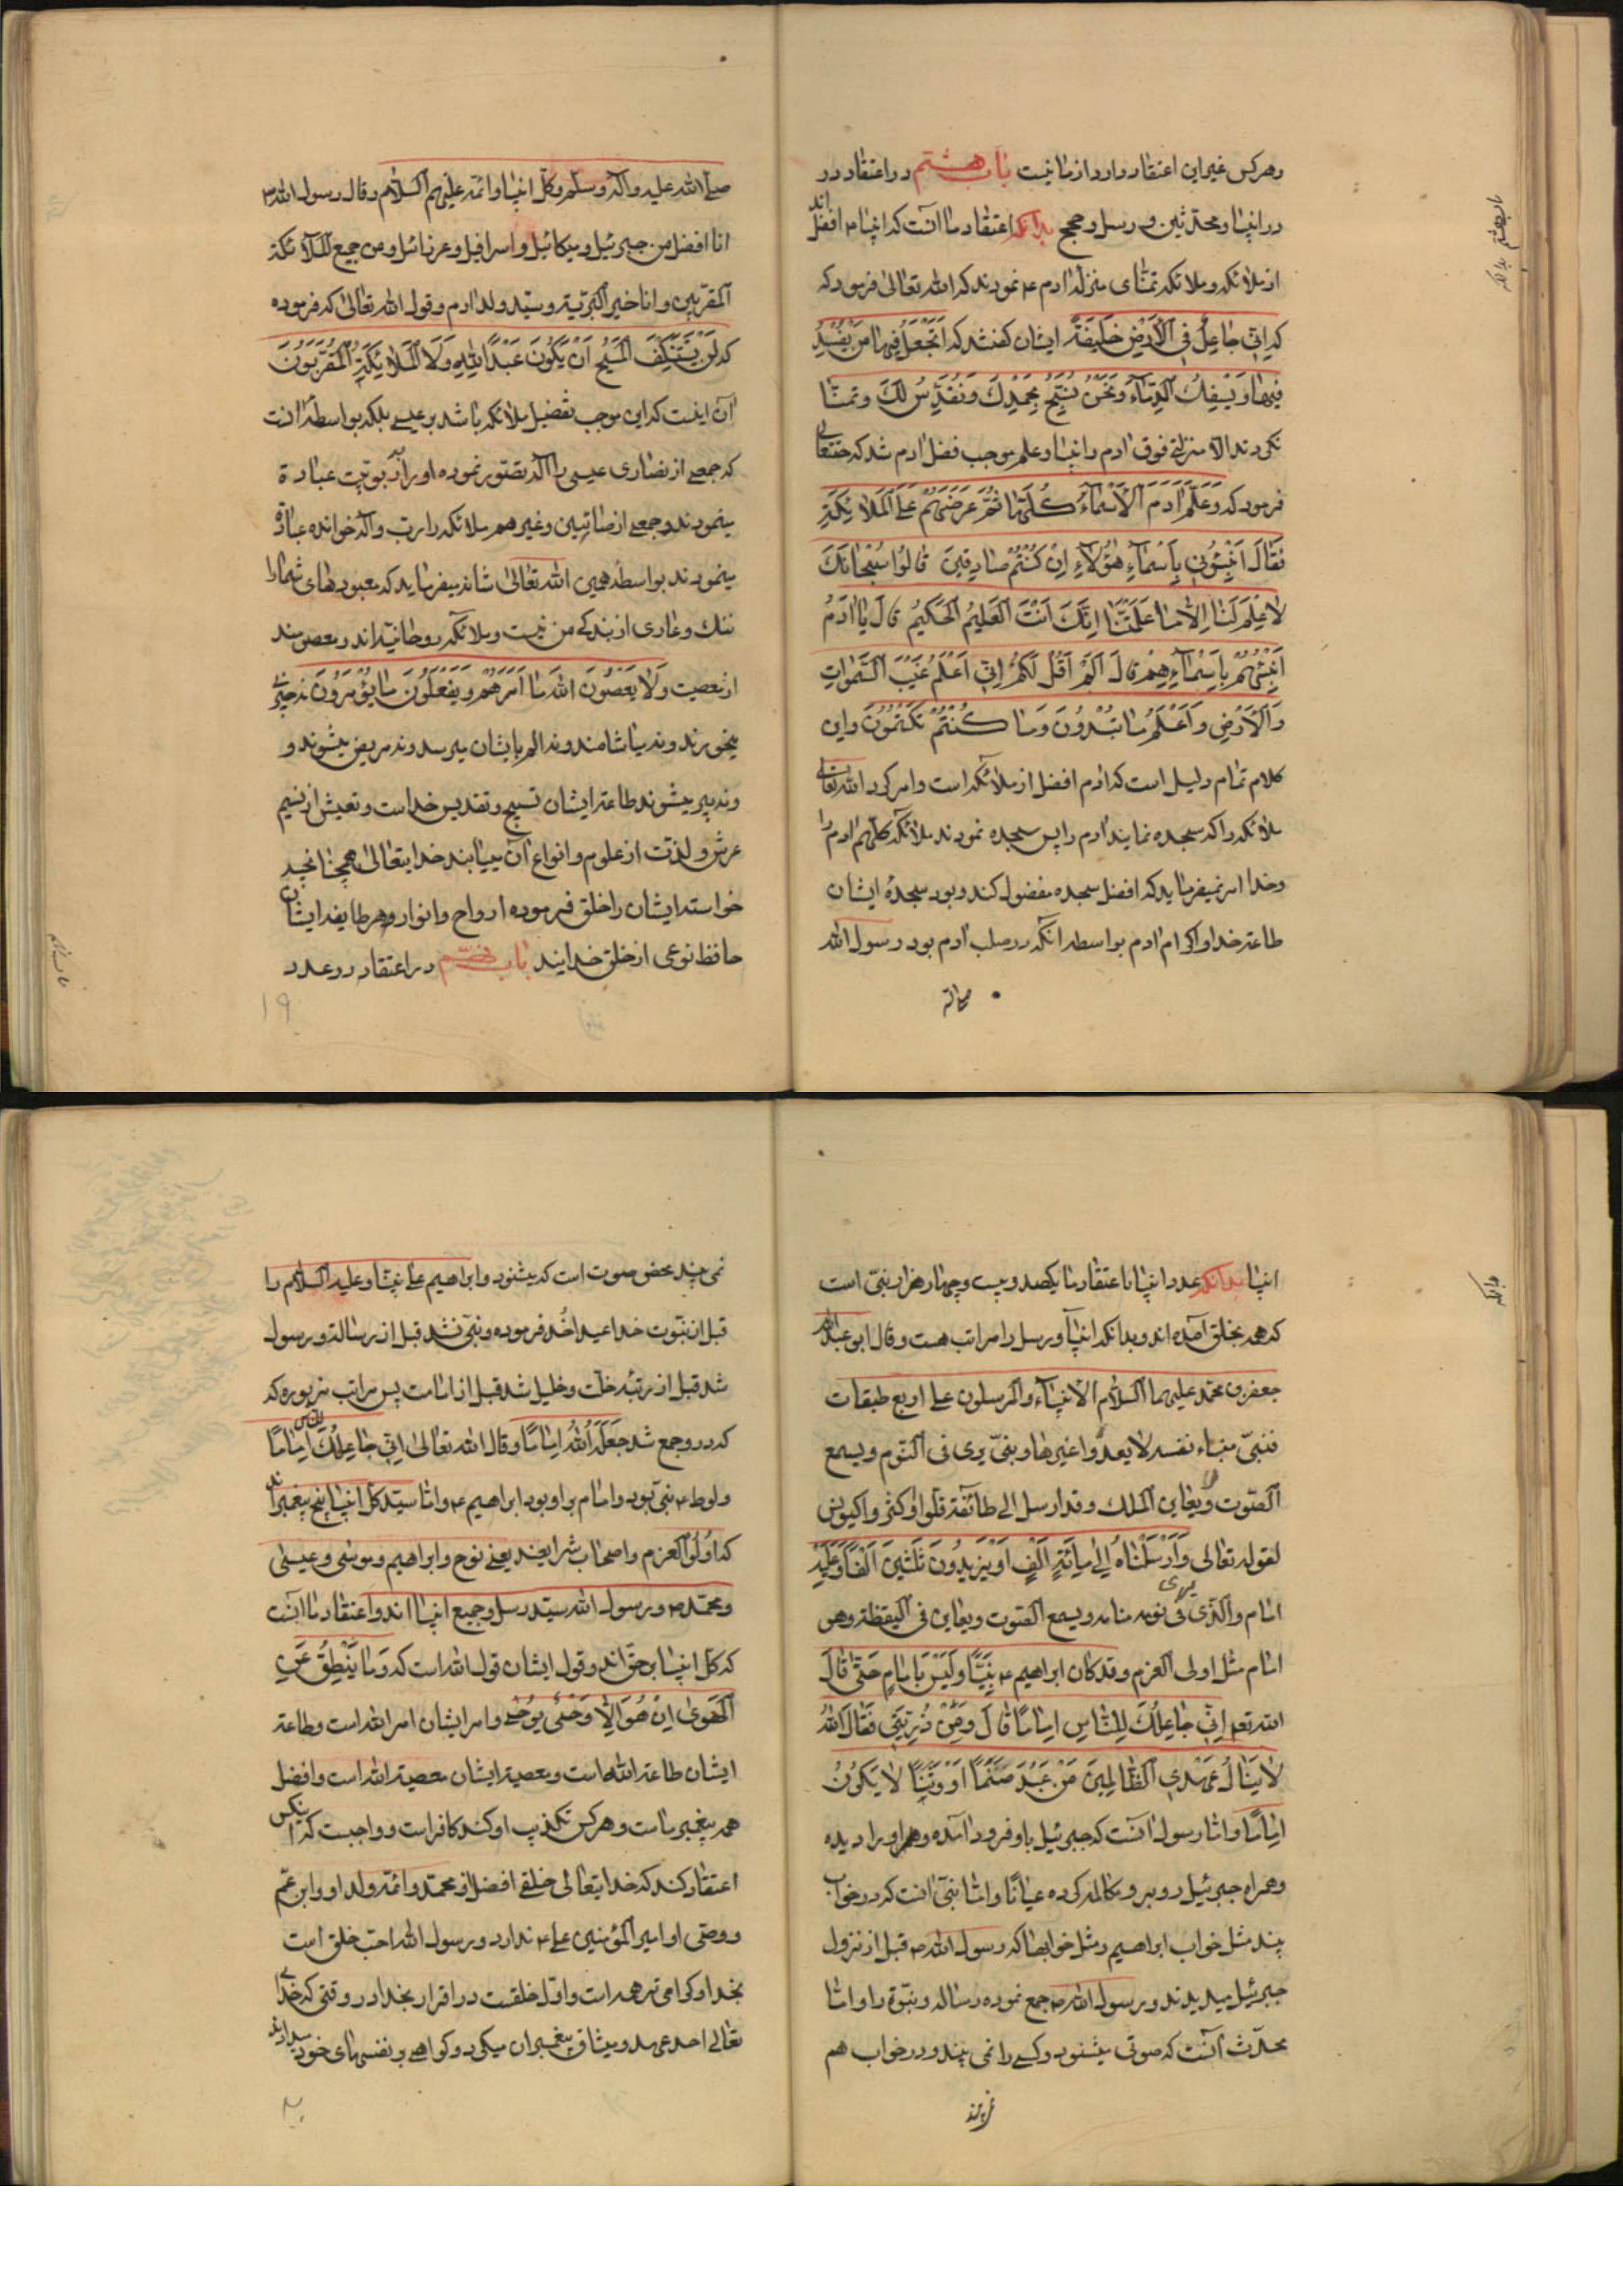 وهرکس غیر این اعتقاد دارد از ما نیست باب هشتم در اعتقاد در
در انبیا و محدثین و رسل و حجج بدانکه اعتقاد ما آنست که انبیا ء افضل اند
از ملائکه و ملائکه تمنای منزله ادم ء نمودند که الله تعالی فرمود که
که اِنّی جاعِلٌ فی الْاَرْضِ خَلیفَةً ایشان گفتند که اَتَجْعَلُ فیها مَنْ یُفْسِدُ
فیها وَیَسْفِکُ الدِّماءَ وَنَحْنُ نُسَبِّحُ بِحَمْدِكَ وَنُقَدِّسُ لَكَ وتمنا
نکردند الا منزلتی فوق ادم را نبیا و علم موجب فضل ادم شد که حقتعالی
فرمود که وَعَلَّمَ ادَمَ الْاَسْماءَ کُلَّها ثُمَّ عَرَضَهُمْ عَلَی الْمَلائِکَةِ
فَقالَ اَنْبِئُونی بِاَسْماءِ هٰؤُلاءِ اِنْ کُنْتُمْ صادِقینَ قالُوا سُبْحانَكَ
لا عِلْمَ لَنا اِلّا ما عَلَّمْتَنا اِنَّكَ اَنْتَ الْعَلیمُ الْحَکیمُ قالَ یا ادَمُ
اَنْبِئْهُمْ بِاَسْماءِهِمْ قالَ اَلَمْ اَقُلْ لَکُمْ اِنّی اَعْلَمُ غَیْبَ السَّمٰواتِ
وَالْاَرْضِ وَاَعْلَمُ ما تُبْدُونَ وَما کُنْتُمْ تَکْتُمُونَ واین
کلام تمام دلیل است که ادم افضل از ملائکه است و امر کرد الله تعالی
ملائکه را که سجده نمایند ادم را پس سجده نمودند ملائکه کلهم ادم را
وخدا امر نمیفرماید که افضل سجده مفضول کند و بود سجدۀ ایشان
طاعة خدا و اکرام ادم بواسطه انکه در صلب ادم بود رسول الله
باب هشتم بدانکه
صلی الله علیه وآله وسلم وکل انبیا وائمه علیهم السلام وقال رسول الله ص
انا افضل من جبرئیل ومیکائیل واسرافیل وعزرائیل ومن جمیع الملآئکة
المقربین وانا خیر البریّة وسیّد ولد ادم وقول الله تعالی که فرموده
که لَنْ یَسْتَنْکِفَ الْمَسیحُ اَنْ یَکُونَ عَبْدًا لِلّٰهِ وَلَا الْمَلائِکَةُ الْمُقَرَّبُونَ
آن اینست که این موجب تفضیل ملائکه باشد بر عیسی بلکه بواسطۀ انست
که جمعی از نصاری عیسی را اله تصور نموده او را بربوبیت عبادة
مینمودند و جمعی از صائبین وغیر هم ملائکه را رب واله خوانده عبادة
مینمودند بواسطه همین الله تعالی شانه میفرماید که معبودهای شما را
ننك وعاری از بندکی من نیست وملائکه روحانیه اند ومعصومند
از معصیت وَلا یَعْصُونَ اللهَ ما اَمَرَهُمْ وَیَفْعَلُونَ ما یُؤْمَرُونَ نه چیزی
میخورند ونه میاشامند ونه الم بایشان میرسد ونه مریض میشوند و
ونه پیر میشوند طاعة ایشان تسبیح وتقدیس خداست وتعیش از نسیم
عرش ولذت از علوم وانواع آن مییابند خدایتعالی همچنانچه
خواسته ایشان را خلق فرموده ارواح وانوار وهر طایفه ایشان
حافظ نوعی از خلق خدایند باب نهم در اعتقاد در عدد
۱۹
انبیا بدانکه عدد انبیا باعتقاد ما یکصد و بیست و چهار هزار نبیّ است
که همه بخلق آمده اند وبدانکه انبیآ ورسل را مراتب هست وقال ابو عبدالله
جعفر بن محمد علیهما السلام الانبیآء والمرسلون علی اربع طبقات
فنبیّ منباء نفسه لا یعدوا غیرها ونبیّ یری فی النوم ویسمع
الصوت ولا یعاین الملك وقد ارسل الی طآئفة قلّوا او کثروا کیونس
لقوله تعالی وَاَرْسَلْناهُ اِلی مِائَةِ اَلْفٍ اَوْ یَزیدُونَ ثَلثینَ اَلْفًا وَعَلَیْهِ
امام والذی یری فی نومه منامه ویسمع الصوت ویعاین فی الیقظة وهو
امام مثل اولی العزم وقد کان ابراهیم ء نَبِیًّا وَلَیْسَ بِاِمامٍ حَتّی قالَ
الله تعم اِنّی جاعِلُكَ لِلنّاسِ اِمامًا قالَ وَمِنْ ذُرِّیَّتی فَقالَ اللهُ
لا یَنالُ عَهْدِی الظّالِمینَ مَنْ عَبَدَ صَنَمًا اَوْ وَثَنًا لا یَکُونُ
اِمامًا واما رسول آنست که جبرئیل باو فرود آمده وهم او را دیده
وهمراه جبرئیل روبرو مکالمه کرده عیانا واما نبیّ انست که در خواب
بیند مثل خواب ابراهیم ومثل خوابها که رسول الله ص قبل از نزول
جبرئیل میدیدند ورسول الله ص جمع نموده رساله ونبوّة را واما
محدّث آنست که صوتی میشنود وکسی را نمی بیند ودر خواب هم
بدانکه
نمی بیند محض صوت است که میشنود وابراهیم علی نبینا وعلیه السلام را
قبل از نبوت خدا عبد اخذ فرموده ونبی نشد قبل از رسالة ورسول
شد قبل از رتبۀ خلت وخلیل شد قبل از امامت پس مراتب مزبوره که
که در او جمع شد جَعَلَهُ اللهُ اِمامًا وقال الله تعالی اِنّی جاعِلُكَ للناس اِمامًا
ولوط ء نبیّ بود وامام بر او بود ابراهیم ء واما سیّد کل انبیا پنج پیغمبراند
که اُولُوا العزم واصحاب شرایعند یعنی نوح وابراهیم وموسی وعیسی
ومحمّد ص ورسول الله سیّد رسل وجمیع انبیا اند واعتقاد ما آنست
که کل انبیا بر حق اند وقول ایشان قول الله است که وَما یَنْطِقُ عَنِ
الْهَوی اِنْ هُوَ اِلّا وَحْیٌ یُوحی وامر ایشان امر الله است وطاعة
ایشان طاعة الله است ومعصیة ایشان معصیة الله است وافضل
همه پیغمبر ماست وهر کس تکذیب او کند کافر است وواجبست که اینکس
اعتقاد کند که خدایتعالی خلقی افضل از محمّد وائمه ولد او وابن عمّ
ووصّی او امیر المؤمنین علی ء ندارد ورسول الله احبّ خلق است
بخدا وکرامی تر همه است واوّل خلقست در اقرار بخدا در وقتی که خدای
تعالی اخذ عهد ومیثاق پیغمبران میکرد وکواهی بر نفسهای خود